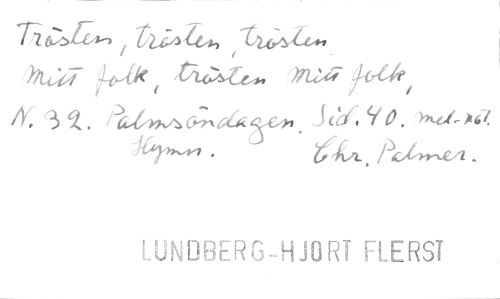 Trösten, trösten, trösten
mitt folk, trösten mitt folk,
N. 32. Palmsöndagen. Sid. 40. mel-not.
Hymn. Chr. Palmer.
LUNDBERG-HJORT FLERST